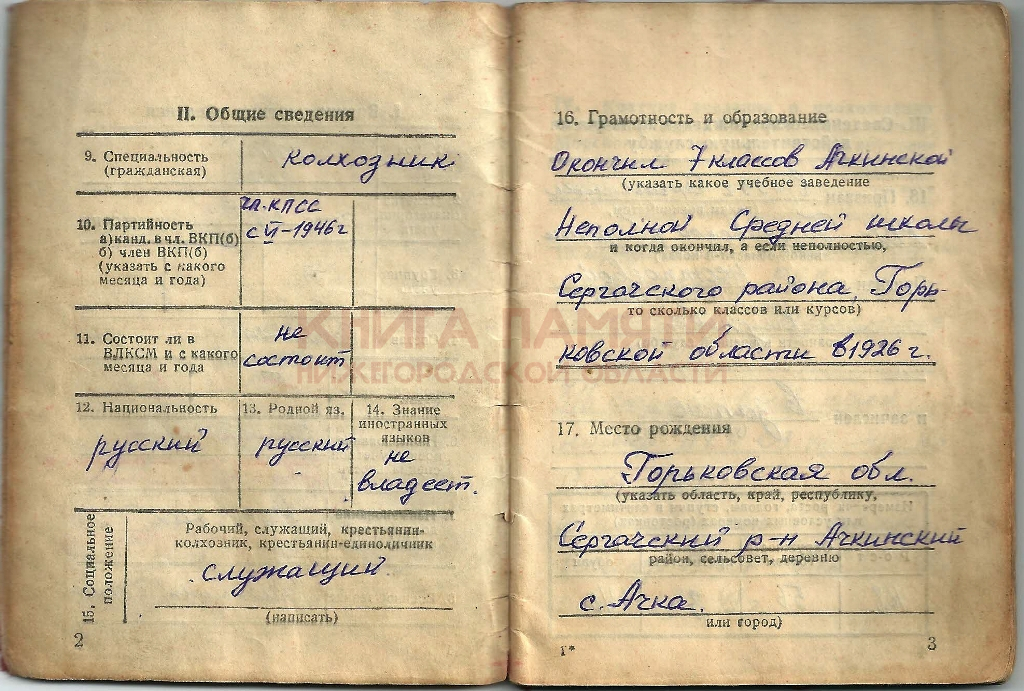 II. Общие сведения
9. Специальность
(гражданская)
колхозник
10. Партийность
а) канд. в чл. ВКП(б)
б) член ВКП(б)
(указать с какого
месяца и года)
чл. КПСС
с VI-1946 г
11. Состоит ли в
ВЛКСМ и с какого
месяца и года
не
состоит
12. Национальность
русский
13. Родной яз.
русский
14. Знание
иностранных
языков
не
владеет.
15. Социальное
положение
Рабочий, служащий, крестьянин-
колхозник, крестьянин-единоличник
служащий
(написать)
2
16. Грамотность и образование
Окончил 7 классов Ачкинской
(указать какое учебное заведение
Неполной Средней школы
и когда окончил, а если неполностью,
Сергачского района, Горь-
то сколько классов или курсов)
ковской области в 1926 г.
17. Место рождения
Горьковская обл.
(указать область, край, республику,
Сергачский р-н Ачкинский
район, сельсовет, деревню
с. Ачка.
или город)
1*
3
КНИГА ПАМЯТИ
НИЖЕГОРОДСКОЙ ОБЛАСТИ